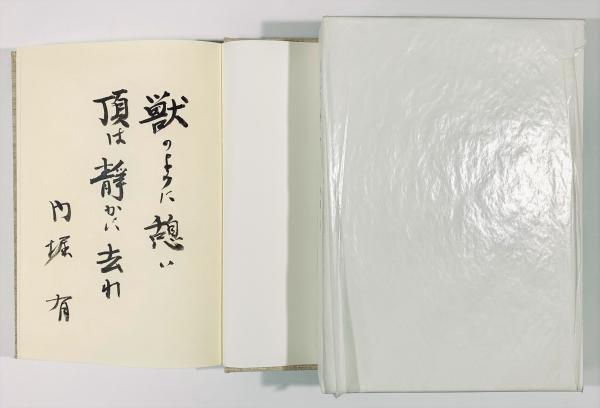 獣のように憩い
頂は静かに去れ
内堀有